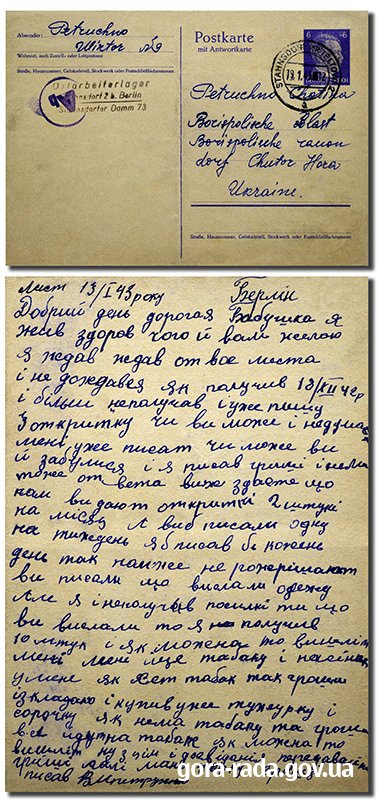 Absender: Petruchno
Wiktor №9
Wohnort, auch Zustell- oder Leitpostamt
Straße, Hausnummer, Gebäudeteil, Stockwerk oder Postschließfachnummer
Ostarbeiterlager
Stahnsdorf b. Berlin
Stahnsdorfer Damm 73
Postkarte
mit Antwortkarte
6 6
STAHNSDORF
Petruchno
Borispolische Blast
Borispolische raion
dorf Chutor Hora
Ukraine.
Straße, Hausnummer, Gebäudeteil, Stockwerk oder Postschließfachnummer
лист 13/I 43 року Берлін
Добрий день дорогая Бабушка я
жив здоров чого й вам желаю
я ждав ждав от вас листа
і не дождався як получив 13/XII 42р
і більш неполучав і уже пишу
3 открытку чи ви може і недумаєте
мені уже писат чи може ви
й забулися і я писав гриші і нема
тоже от вета виже здаєте що
нам видают открытки 2 штуки
на місяц А ви б писали одну
на тиждень я б писав би кожен
день так нам же не розрешают
ви писали що вислали одежу
Але я і неполучив посилки ти що
ви вислали то я получив
10 штук і як можена то вишліть
мені мені ще табаку і
у мене як єст табак так гроши
і складаю і купив уже тужурку і
сорочку як нема табаку та гроши
все идут на табак як можна то
вишліт ну з цім і досвіданя передавайте
писав
gora-rada.gov.ua